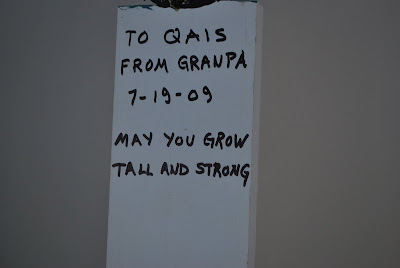 TO QAIS
FROM GRANPA
7-19-09
MAY YOU GROW
TALL AND STRONG